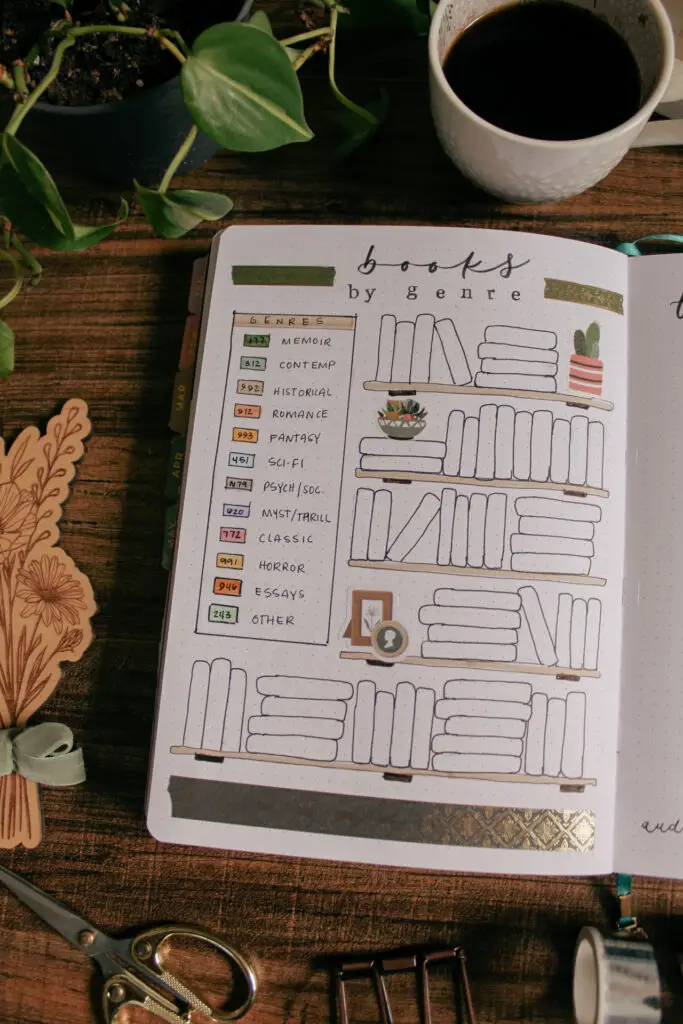 books
by genre
GENRES
MEMOIR
312 CONTEMP
992 HISTORICAL
912 ROMANCE
993 FANTASY
451 SCI-FI
N79 PSYCH/SOC.
620 MYST/THRILL
772 CLASSIC
991 HORROR
946 ESSAYS
243 OTHER
MAR
APR